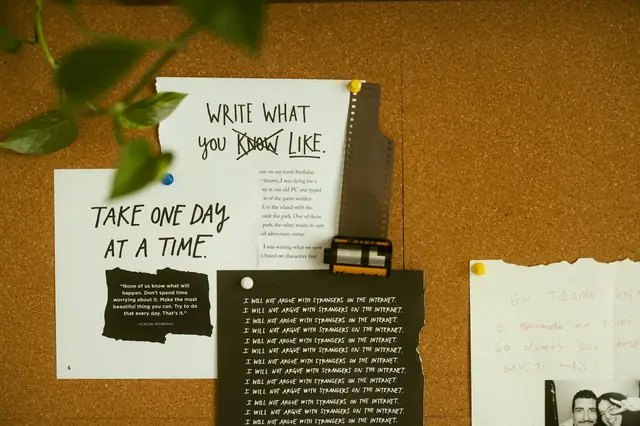 WRITE WHAT
YOU KNOW LIKE.
out on my tenth birthday
theatre, I was dying for a
ay at our old PC and typed
st of the game warden
l, to the island with the
ault the park. One of them
park, the other wants to save
nd adventures ensue.
I was writing what we now
s based on characters that
TAKE ONE DAY
AT A TIME.
"None of us know what will
happen. Don't spend time
worrying about it. Make the
most beautiful thing you can. Try to do
that every day. That's it."
—Laurie Anderson
6
I WILL NOT ARGUE WITH STRANGERS ON THE INTERNET.
I WILL NOT ARGUE WITH STRANGERS ON THE INTERNET.
I WILL NOT ARGUE WITH STRANGERS ON THE INTERNET.
I WILL NOT ARGUE WITH STRANGERS ON THE INTERNET.
I WILL NOT ARGUE WITH STRANGERS ON THE INTERNET.
I WILL NOT ARGUE WITH STRANGERS ON THE INTERNET.
I WILL NOT ARGUE WITH STRANGERS ON THE INTERNET.
I WILL NOT ARGUE WITH STRANGERS ON THE INTERNET.
I WILL NOT ARGUE WITH STRANGERS ON THE INTERNET.
I WILL NOT ARGUE WITH STRANGERS ON THE INTERNET.
I WILL NOT ARGUE WITH STRANGERS ON THE INTERNET.
I WILL NOT ARGUE WITH STRANGERS ON THE INTERNET.
I WILL NOT ARGUE WITH STRANGERS ON THE INTERNET.
TEAMO